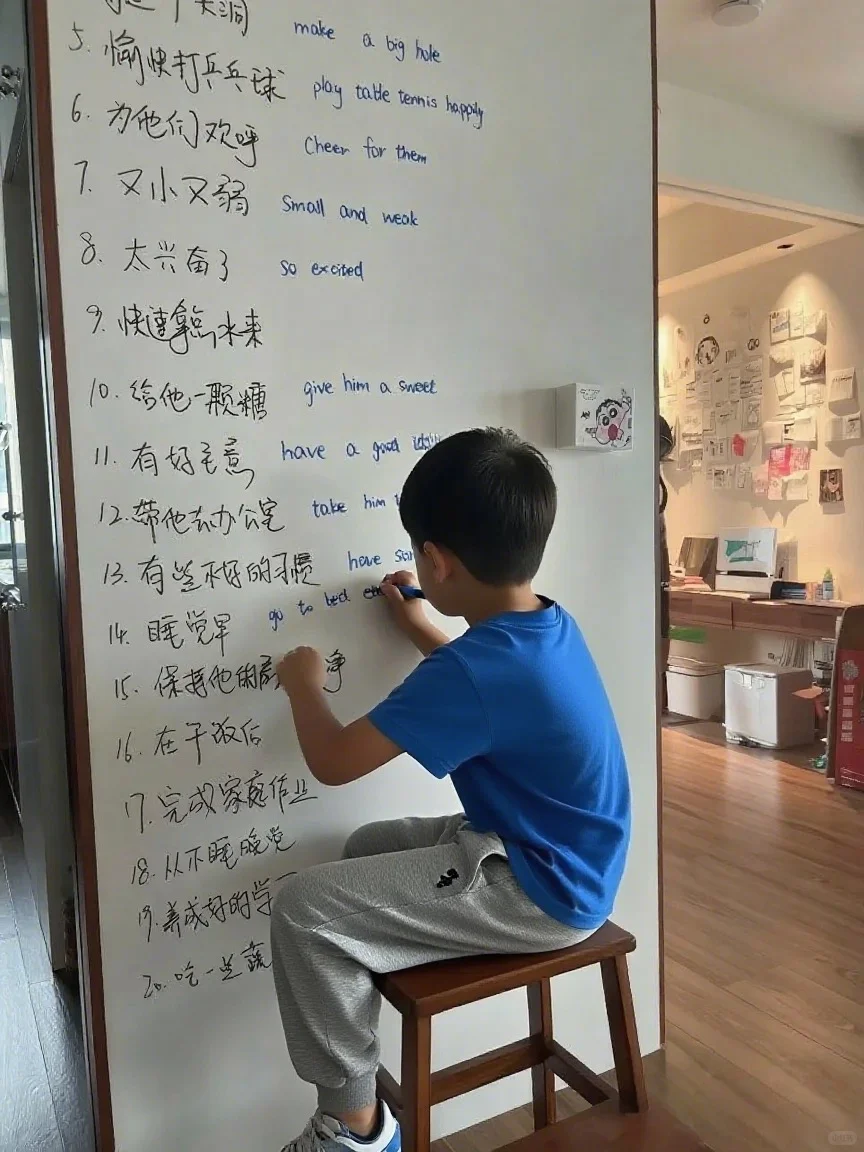 个大洞 make a big hole
5. 愉快打乒乓球 play table tennis happily
6. 为他们欢呼 Cheer for them
7. 又小又弱 Small and weak
8. 太兴奋了 so excited
9. 快速拿点水来
10. 给他一颗糖 give him a sweet
11. 有好主意 have a good
12. 带他去办公室 take him
13. 有些不好的习惯 have
14. 睡觉早 go to bed
15. 保持他的 净
16. 在午饭后
17. 完成家庭作业
18. 从不睡晚觉
19. 养成好的学
20. 吃一些蔬